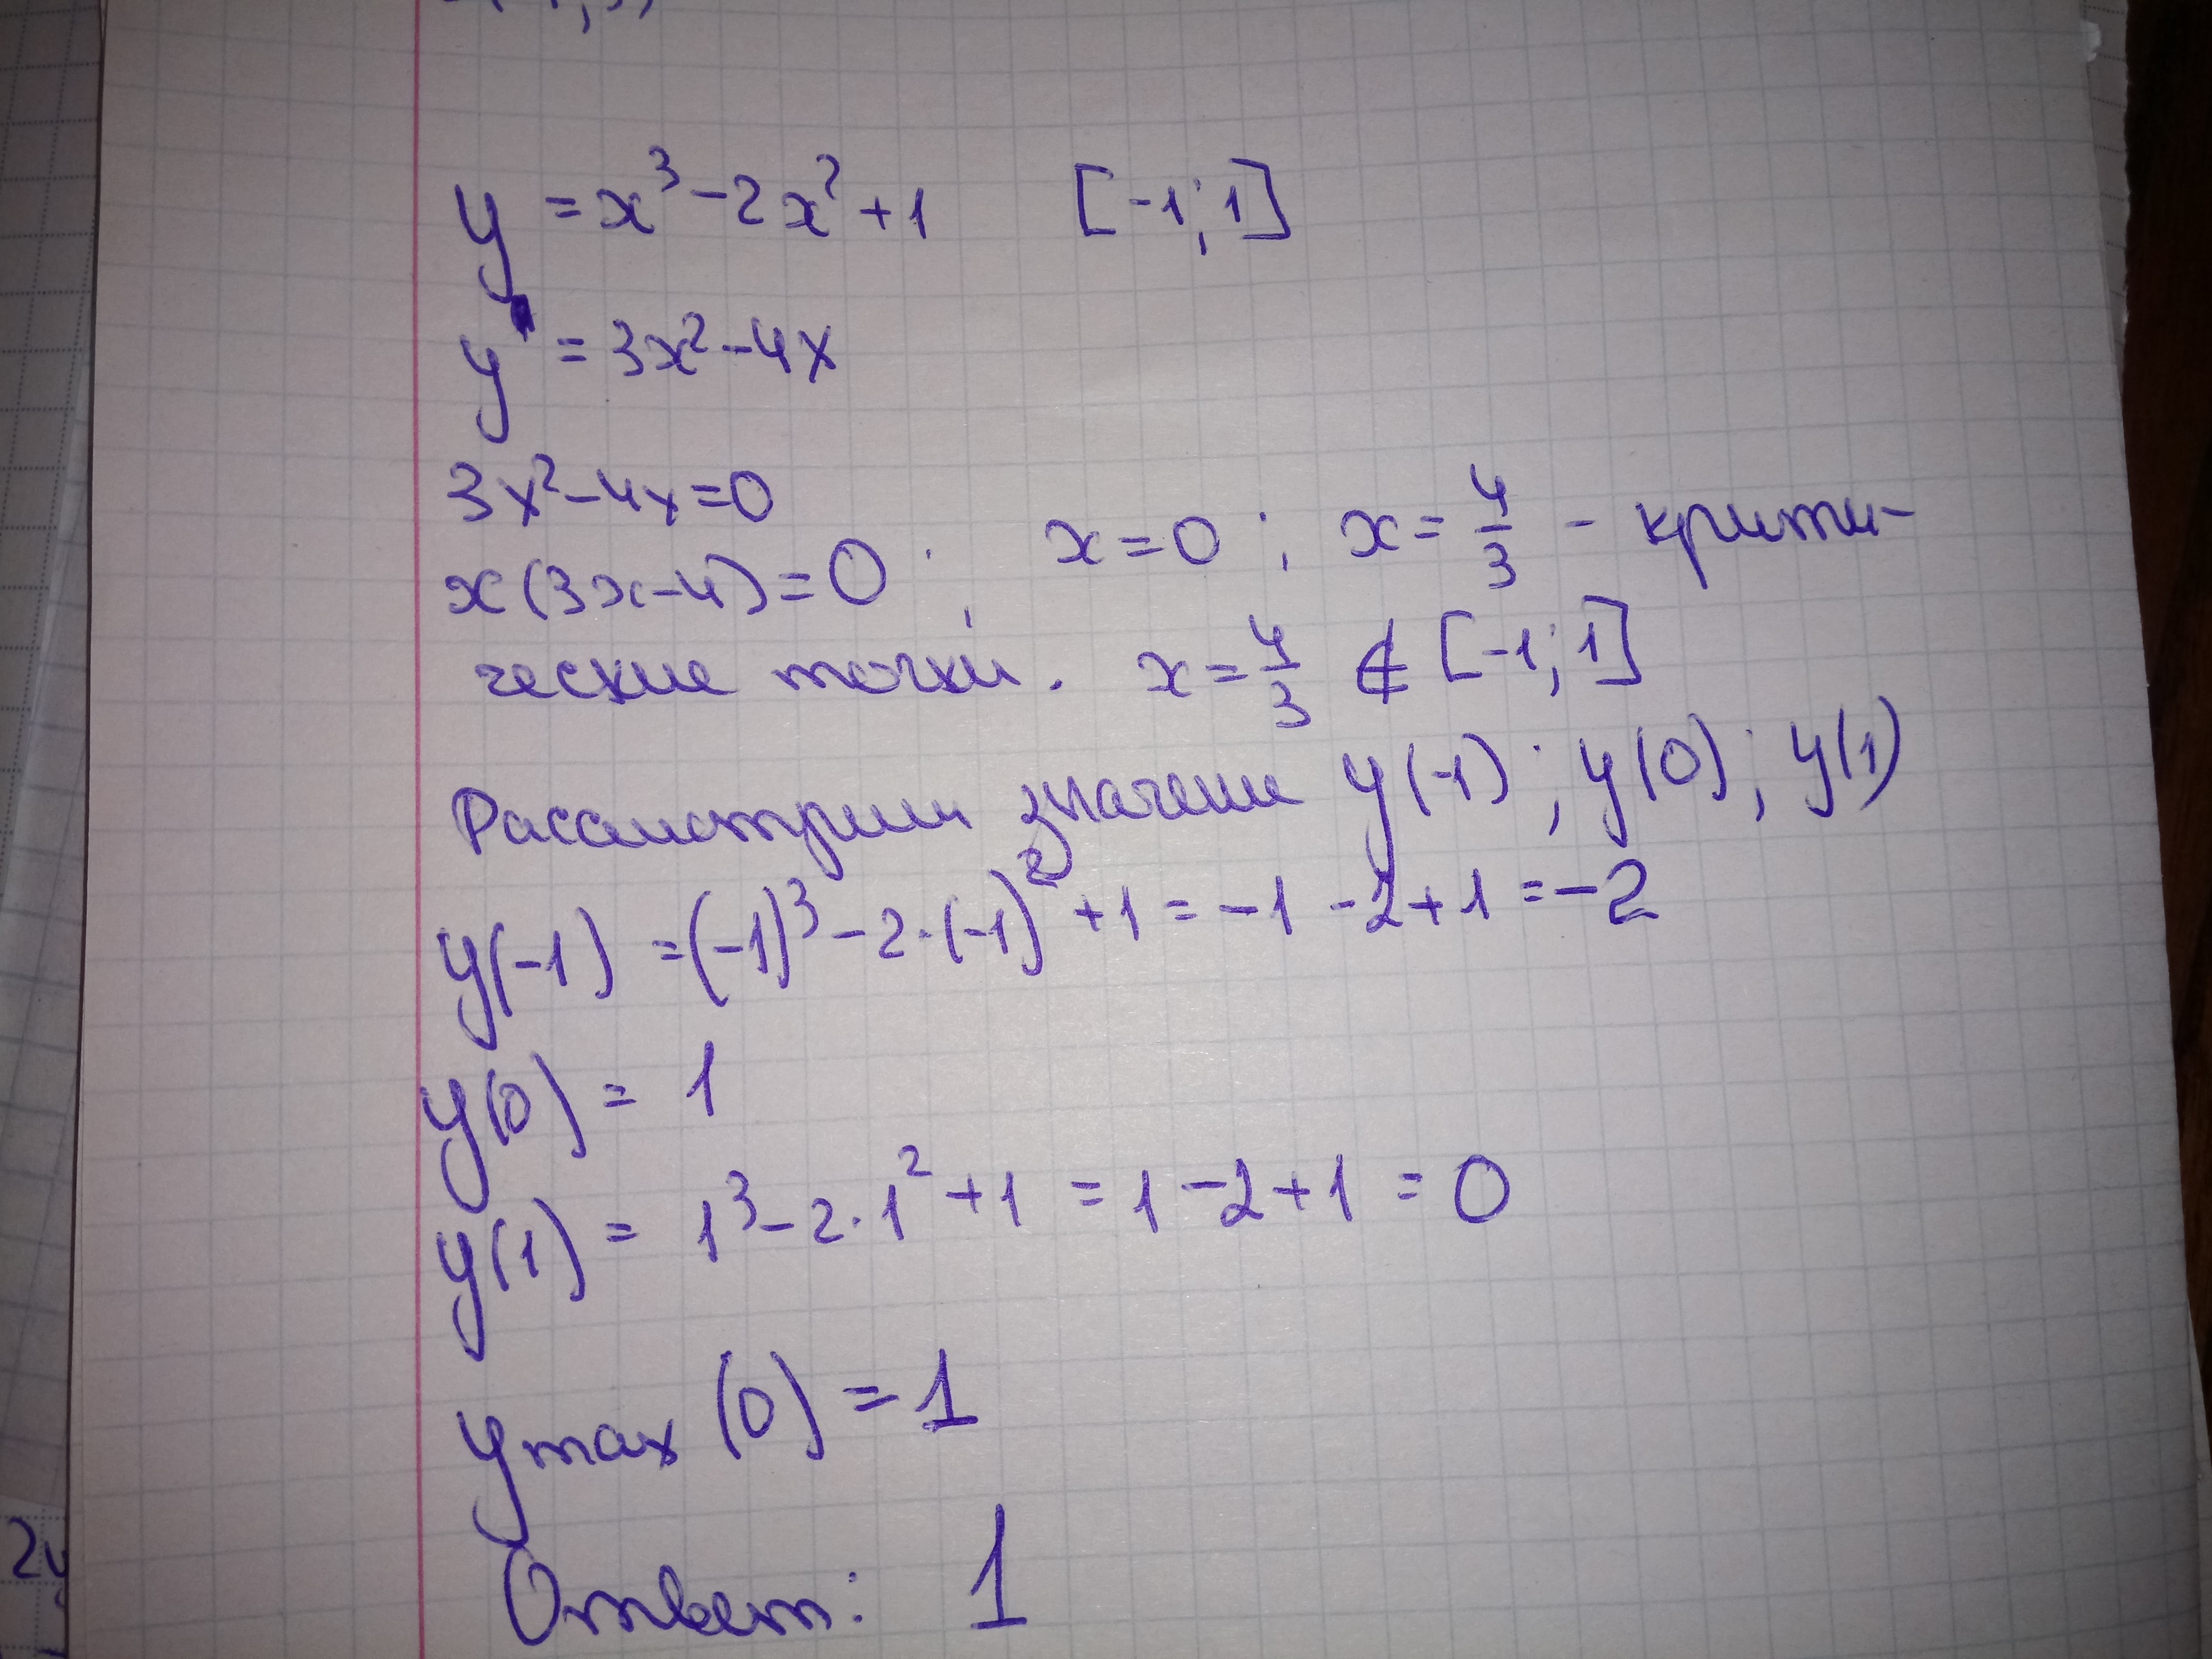 y = x³ - 2x² + 1 [-1; 1]
y' = 3x² - 4x
3x² - 4x = 0
x(3x - 4) = 0; x = 0; x = 4/3 - крити-
ческие точки. x = 4/3 ∉ [-1; 1]
Рассмотрим значение y(-1); y(0); y(1)
y(-1) = (-1)³ - 2·(-1)² + 1 = -1 - 2 + 1 = -2
y(0) = 1
y(1) = 1³ - 2·1² + 1 = 1 - 2 + 1 = 0
y max (0) = 1
Ответ: 1